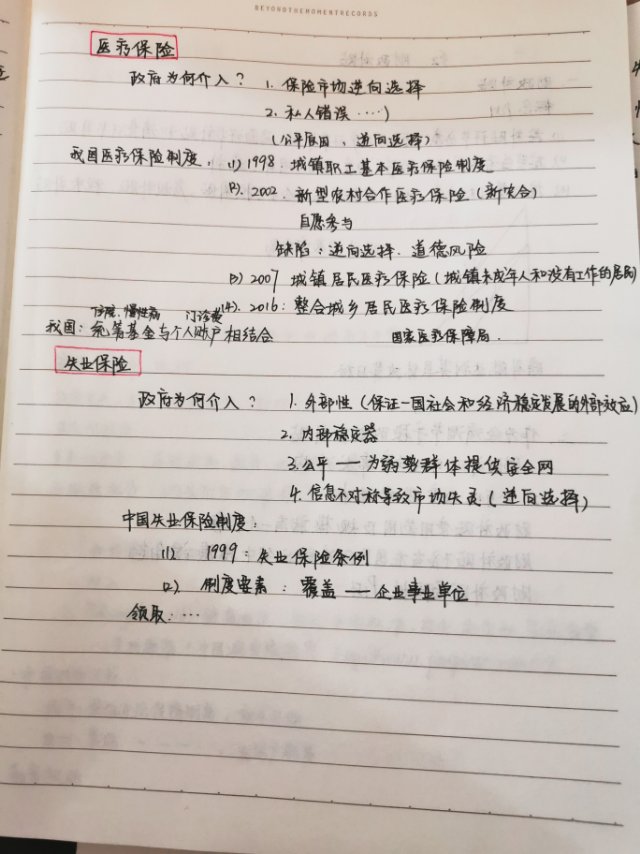 BEYONDTHEMOMENTRECORDS
医疗保险
政府为何介入？ 1. 保险市场逆向选择
2. 私人错误 ····)
(公平原因、逆向选择)
我国医疗保险制度. (1) 1998. 城镇职工基本医疗保险制度
2002. 新型农村合作医疗保险 (新农合)
自愿参与
缺陷：逆向选择. 道德风险
(3) 2007 城镇居民医疗保险 (城镇未成年人和没有工作的居民)
(4). 2016：整合城乡居民医疗保险制度
住院. 慢性病 门诊费
我国：统筹基金与个人账户相结合 国家医疗保障局.
失业保险
政府为何介入？ 1. 外部性 (保证一国社会和经济稳定发展的外部效应)
2. 内部稳定器
3. 公平 — 为弱势群体提供安全网
4. 信息不对称导致市场失灵 (逆向选择)
中国失业保险制度：
(1) 1999：失业保险条例
(2) 制度要素：覆盖 — 企业事业单位
领取：···